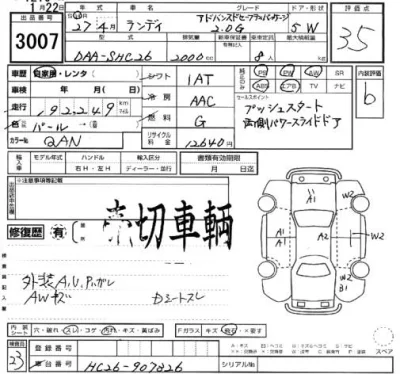 1月22日
出品番号 3007
年式 車名 グレード ドア・形状 評価点
27年4月 ランディ 2.0G 5 W 3.5
型式 排気量 乗車定員 最大積載量
DAA-SHC26 2000cc 8人
車歴 自家用・レンタ シフト 1AT PS PW AW SR 内装評価
車検 年 月 冷房 AAC ABS エアB TV ナビ b
走行 192,249 km マイル 燃料 G セールスポイント
プッシュスタート
色 パール
両側パワースライドドア
カラーNo. QAN リサイクル料金 12640円
輸入車 モデル年式 ハンドル 輸入区分 書類有効期限
年 右H・左H ディーラー・並行 月 日迄
※注意事項等記載
修復歴 有 売切車輌
A1 A1 A2 W2 W2 B1
外装A.U.P.ハガレ
AWキズ Dシートスレ
内装 シート 穴・破れ・スレ・コゲ・汚れ・キズ・黄ばみ Fガラス キズ・飛石・×要す
検査員 23 登録番号
車台番号 HC26-907826 シリアルNo. スペア